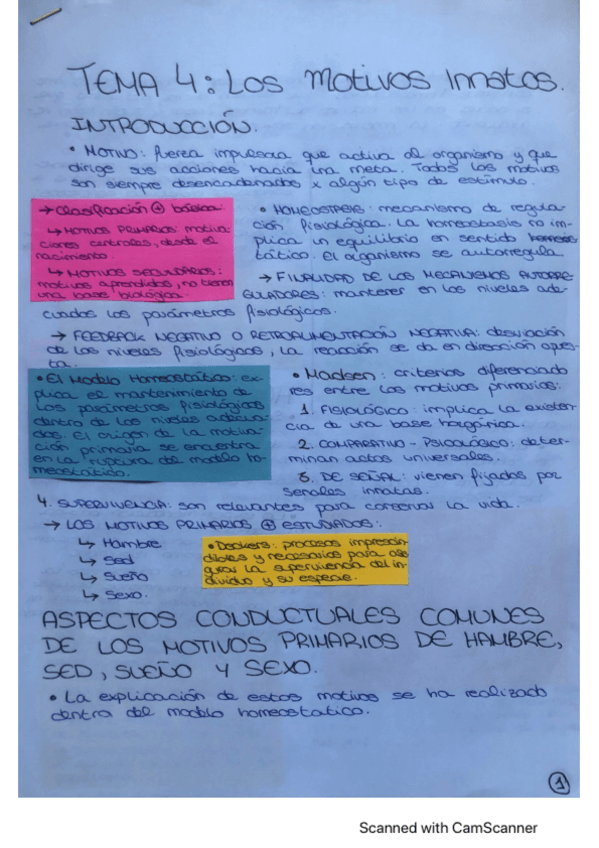 TEMA 4: Los Motivos Innatos.
INTRODUCCIÓN.
• MOTIVO: fuerza impulsora que activa al organismo y que
dirige sus acciones hacia una meta. Todos los motivos
son siempre desencadenados x algún tipo de estímulo.
→ Clasificación + básica:
↳ MOTIVOS PRIMARIOS: motiva-
ciones centrales, desde el
nacimiento.
↳ MOTIVOS SECUNDARIOS:
motivos aprendidos, no tienen
una base biológica.
• HOMEOSTASIS: mecanismo de regula-
ción fisiológica. La homeostasis no im-
plica un equilibrio en sentido
tático. El organismo se autorregula.
→ FINALIDAD DE LOS MECANISMOS AUTORRE-
GULADORES: mantener en los niveles ade-
cuados los parámetros fisiológicos.
→ FEEDBACK NEGATIVO O RETROALIMENTACIÓN NEGATIVA: desviación
de los niveles fisiológicos, la reacción se da en dirección opues-
ta.
• El Modelo Homeostático: ex-
plica el mantenimiento de
los parámetros fisiológicos
dentro de los niveles adecua-
dos. El origen de la motiva-
ción primaria se encuentra
en la ruptura del modelo ho-
meostático.
• Madsen: criterios diferenciado
res entre los motivos primarios:
1. FISIOLÓGICO: implica la existen-
cia de una base
2. COMPARATIVO - PSICOLÓGICO: deter-
minan actos universales.
3. DE SEÑAL: vienen fijados por
señales innatas.
4. SUPERVIVENCIA: son relevantes para conservar la vida.
→ LOS MOTIVOS PRIMARIOS + ESTUDIADOS:
↳ Hambre
↳ Sed
↳ Sueño
↳ Sexo.
• Deckers: procesos imprescin-
dibles y necesarios para ase
gurar la supervivencia del in-
dividuo y su especie.
ASPECTOS CONDUCTUALES COMUNES
DE LOS MOTIVOS PRIMARIOS DE HAMBRE,
SED, SUEÑO Y SEXO.
• La explicación de estos motivos se ha realizado
dentro del modelo homeostatico.
1
Scanned with CamScanner